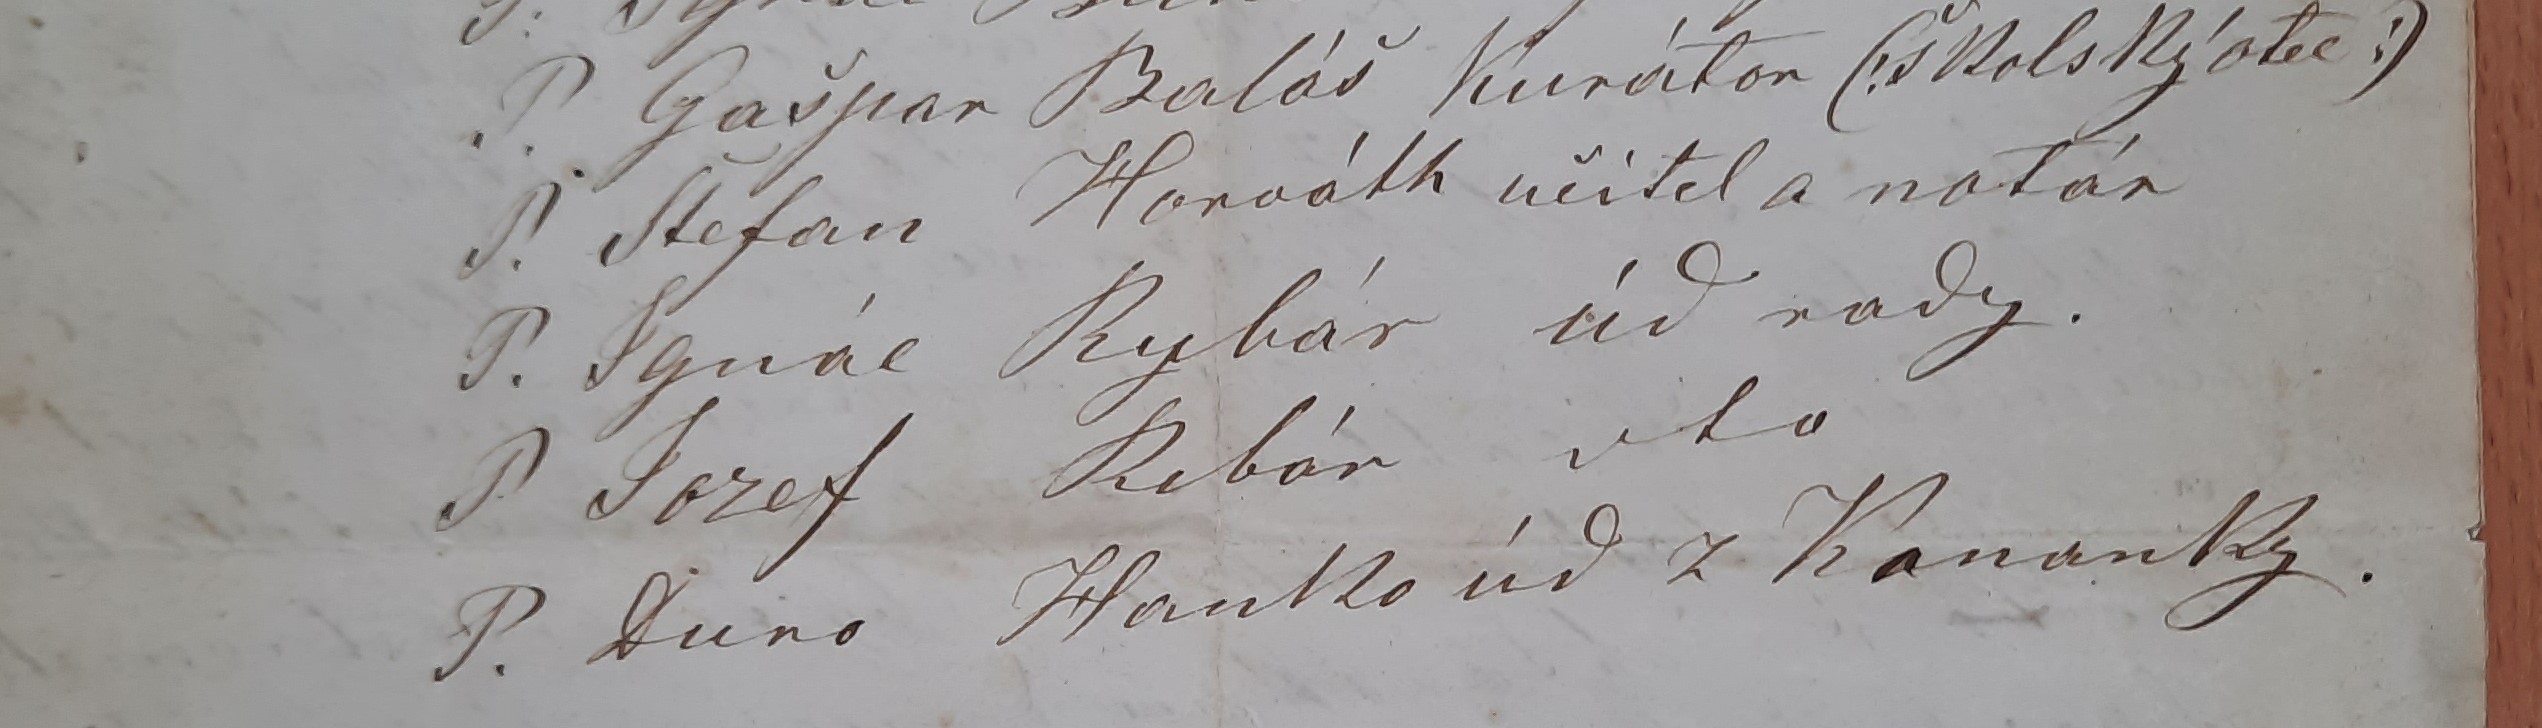 P. Ignác
P. Gašpar Baláš Kurátor (:školský otec:)
P. Štefan Horváth učitel a notár
P. Ignác Rybár úd rady.
P Jozef Ribár dto
P. Ďuro Hanko úd z Kananky.